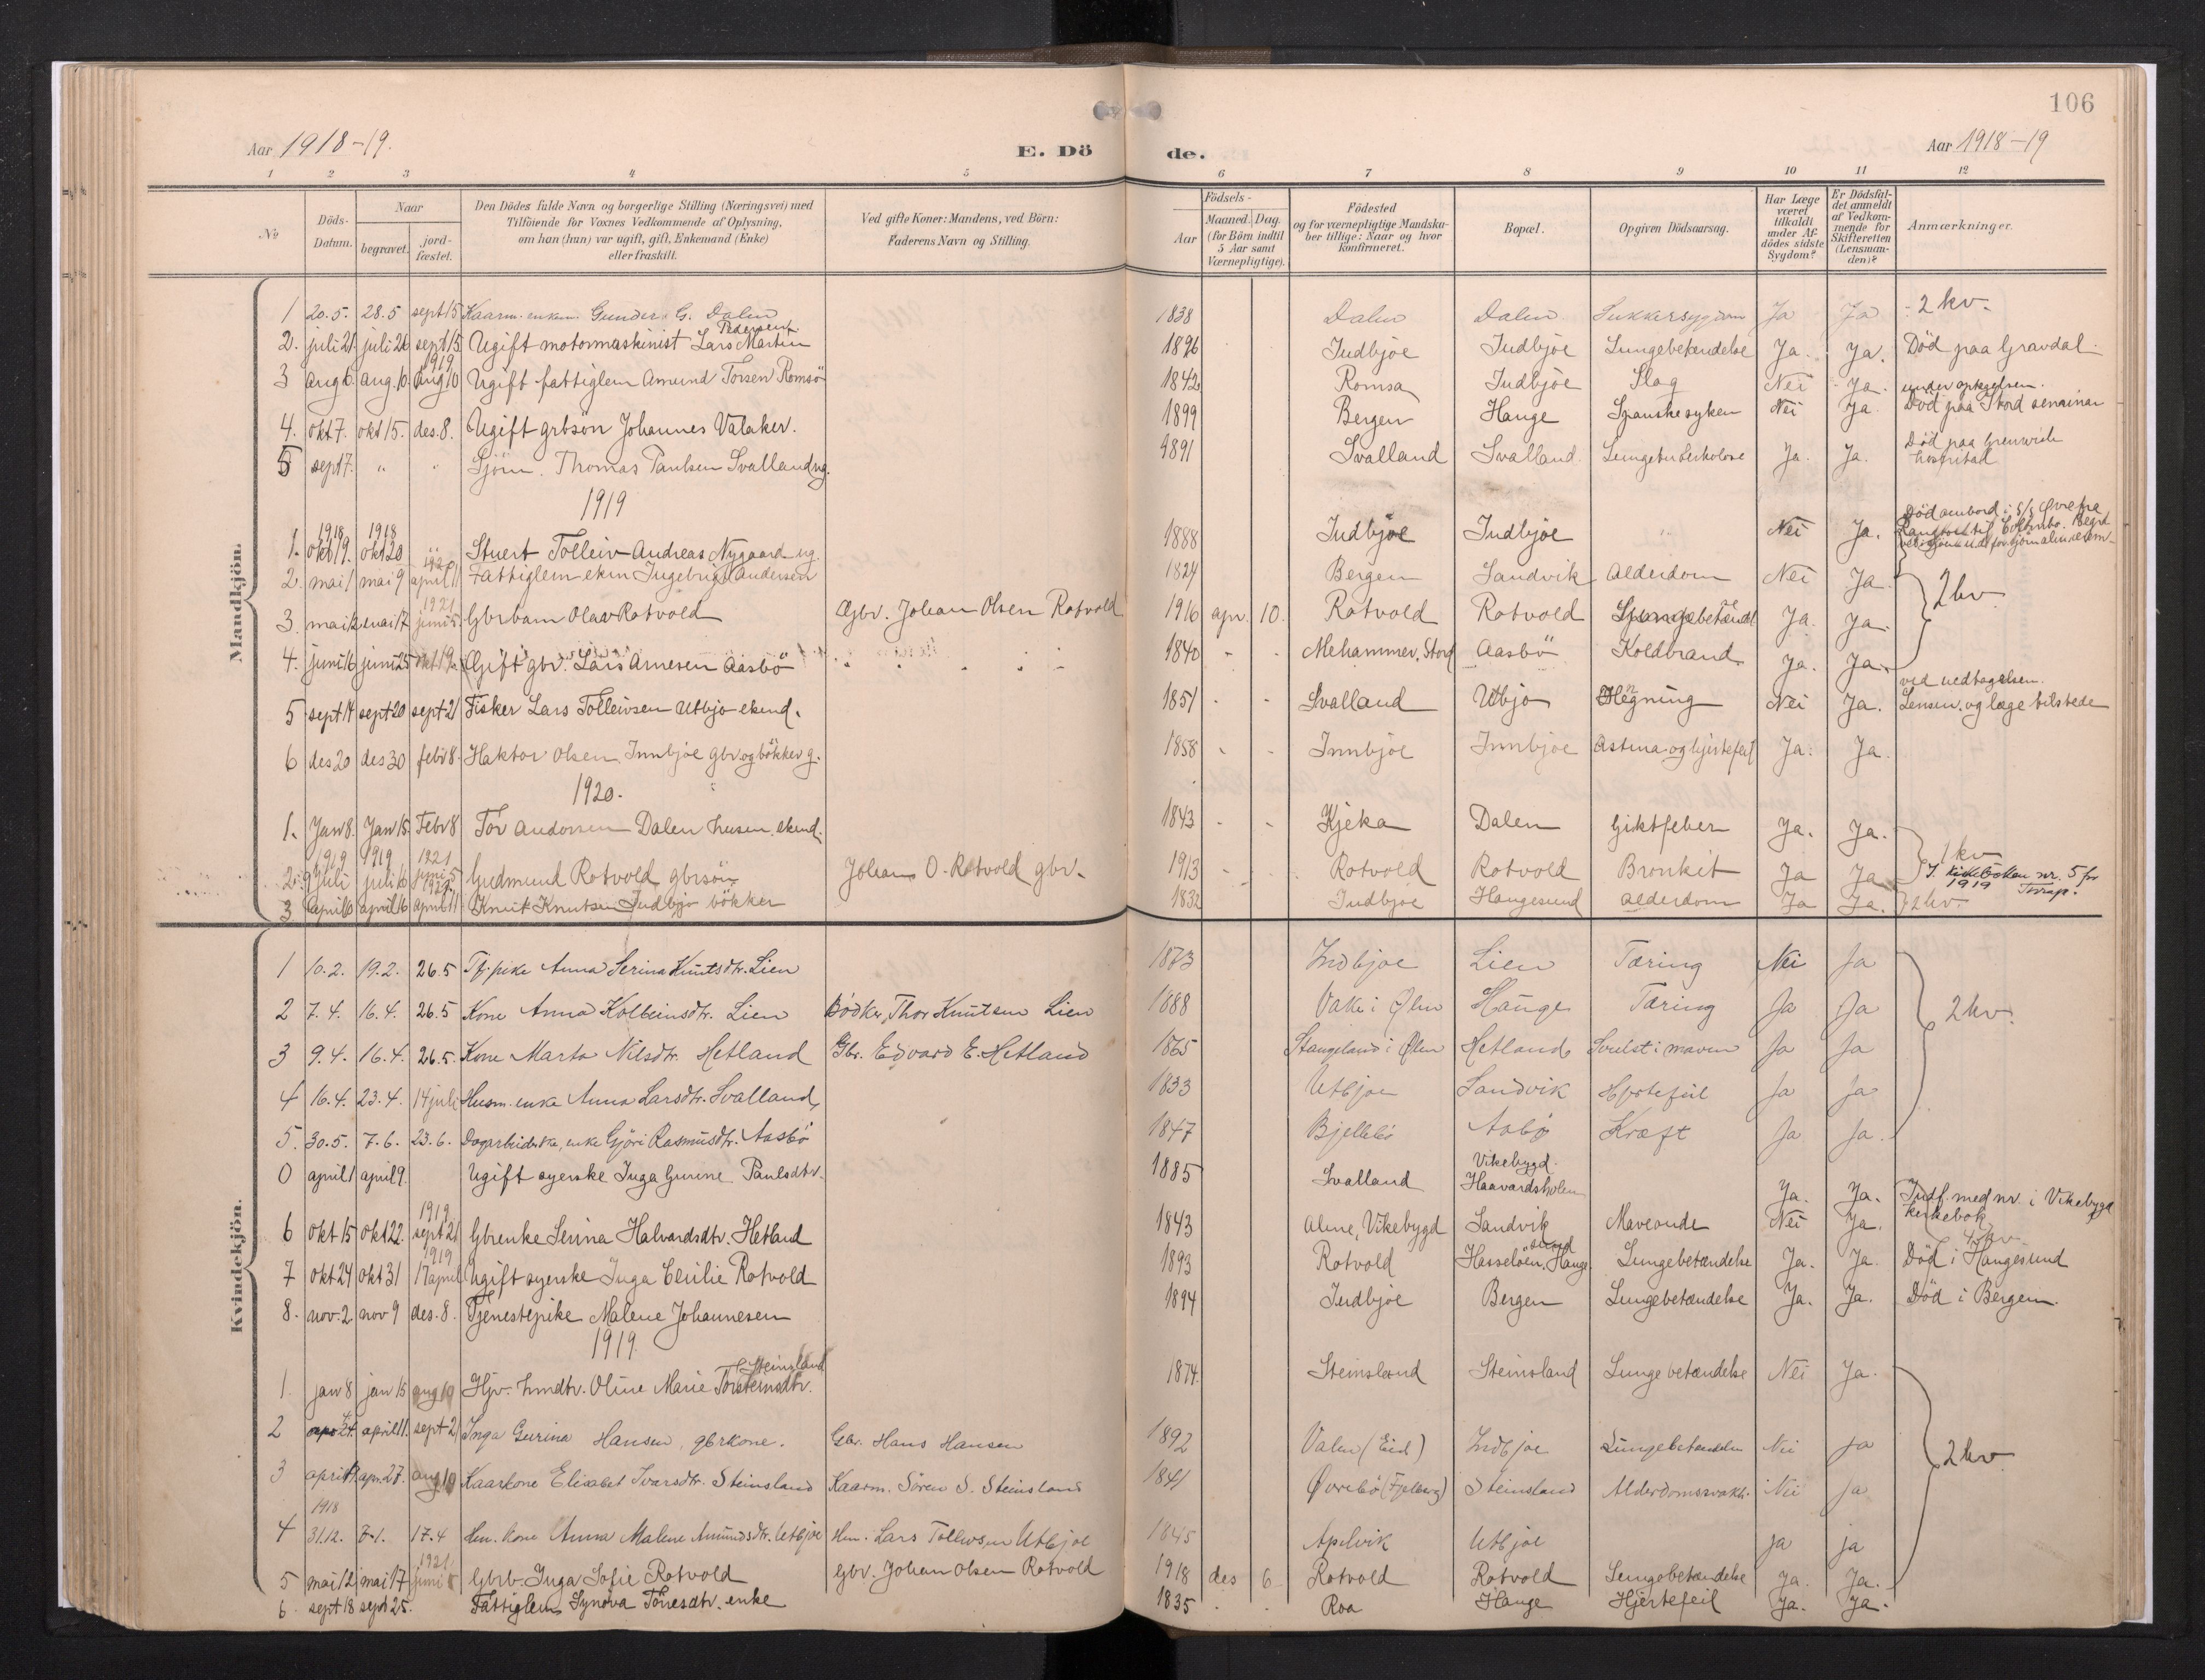 106
Aar 1918-19.
E. Dö
de.
Aar 1918-19
1 2 3 4 5 6 7 8 9 10 11 12
No
Döds-Datum.
Naar
begravet.
jord-fæstet.
Den Dödes fulde Navn og borgerlige Stilling (Næringsvei) med
Tilföiende for Voxnes Vedkommende af Oplysning,
om han (hun) var ugift, gift, Enkemand (Enke)
eller fraskilt.
Ved gifte Koner: Mandens, ved Börn:
Faderens Navn og Stilling.
Födsels-
Aar
Maaned. Dag.
(for Börn indtil
5 Aar samt
Værnepligtige).
Födested
og for værnepligtige Mandska-
ber tillige: Naar og hvor
konfirmeret.
Bopæl.
Opgiven Dödsaarsag.
Har Læge
været
tilkaldt
under Af-
dödes sidste
Sygdom?
Er Dödsfal-
det anmeldt
af Vedkom-
mende for
Skifteretten
(Lensman-
den)?
Anmærkninger.
Mandkjön.
1 20.5. 28.5 sept 15 Kaarm. enkem. Gunder G. Dalen 1838 Dalen Dalen Sukkersygdom Ja Ja 2 kv.
2. juli 21 juli 26 sept 15 Ugift motormaskinist Lars Martin Pedersen 1896 Indbjoe Indbjoe Lungebetændelse Ja. Ja. Död paa Gravdal
3 aug 6. aug. 10. 1919 aug 10 Ugift fattiglem Amund Torsen Romsö 1842 Romsa Indbjoe Slag Nei Ja.
4. okt 7. okt 15. des. 8. Ugift grbsön Johannes Valaker. 1899 Bergen Hauge Spanskesyken Nei Ja. Död paa Stord seminar
5 sept 7. " " Sjöm. Thomas Paulsen Svalland ug. 1891 Svalland Svalland Lungetuberkolose Ja. Ja. Död paa Grenwich hospital
1919
1. 1918 okt 19. 1918 okt 20 Stuert Tolleiv Andreas Nygaard ug. 1888 Indbjoe Indbjoe " Nei Ja. Död ombord i s/s
2. mai 1 mai 9 april 11 Fattiglem ekm Ingebrigt Andersen 1824 Bergen Sandvik Alderdom Nei Ja 2 kv
3. mai 12 mai 17 1921 juni 5. Gbrbarn Olav Rotvold Gbr. Johan Olsen Rotvold 1916 apr. 10. Rotvold Rotvold Lungebetændl Ja. Ja.
4. juni 16 juni 25 okt 19. Gift gbr. Lars Arnesen Aasbö 1840 - - Mehammer, Stord Aasbö Koldbrand Ja. Ja.
5 sept 14 sept 20 sept 21 Fisker Lars Tolleivsen Utbjo ekmd. 1851 - - Svalland Utbjo Hengning Nei Ja. ved nedtagelsen. Lensm. og læge tilstede
6 des 20 des 30 febr 8. Haktor Olsen Innbjoe gbr og bökker g. 1858 - - Innbjoe Innbjoe Astma og hjertefeil Ja. Ja.
1920.
1. Jan 8. Jan 15. Febr 8 Tor Andersen Dalen husm. ekmd. 1843 - - Kjeka Dalen Giktfeber Ja. Ja. 1 kv
2. 1919 9 juli 1919 juli 16 1921 juni 5 Gudmund Rotvold gbrsön Johan O. Rotvold gbr. 1913 Rotvold Rotvold Bronkit Ja Ja I kirkeboken nr. 5 for 1919
3 april 10 april 16 april 11 Knut Knutsen Indbjo bökker 1832 Indbjoe Haugesund Alderdom Ja Ja. 2 kv.
Kvindekjön.
1 10.2. 19.2. 26.5 Tj.pike Anna Serina Knutsdtr. Lien 1873 Indbjoe Lien Tæring Nei Ja
2 7.4. 16.4. 26.5 Kone Anna Kolbeinsdtr. Lien Bödker Thor Knutsen Lien 1888 Vaka i Ølen Hauge Tæring Ja Ja 2 kv.
3 9.4. 16.4. 26.5. Kone Marta Nilsdtr. Hetland Gbr. Edvard E. Hetland 1865 Stangeland i Ølen Hetland Svulst i maven Ja Ja
4 16.4. 23.4. 14 juli Husm. enke Anna Larsdtr. Svalland 1833 Utbjoe Sandvik Hjertefeil Ja Ja
5. 30.5. 7.6. 23.6. Dagarbeiderske, enke Gjöri Rasmusdtr. Aasbö 1847 Bjellebö Aasbö Kræft Ja Ja.
0 april 1 april 9. Ugift syerske Inga Gurine Paulsdtr. 1885 Svalland Vikebygd. Haavardsholm Ja. Ja. Indf. med nr. i Vikebygd kirkebok
6 okt 15 okt 22. 1919 sept 21 Gbrenke Serina Halvardsdtr. Hetland 1843 Alne, Vikebygd Sandvik Maveonde Nei Ja.
7 okt 24 okt 31 1919 17 april Ugift syerske Inga Cecilie Rotvold 1893 Rotvold Hasselöen, Haugesund Lungebetændelse Ja. Ja. Död i Haugesund
8. nov. 2 nov 9 des. 8. Tjenestepike Malene Johannesen 1894 Indbjoe Bergen Lungebetændelse Ja. Ja. Död i Bergen.
1919.
1. jan 8 jan 15 aug 10 Hjv. hmdtr. Oline Marie Torsteinsdtr. Steinsland 1874. Steinsland Steinsland Lungebetændelse Nei Ja.
2 april 11. sept 21 Inga Gurina Hansen, gbrkone. Gbr. Hans Hansen 1892 Valen (Eid) Indbjoe Lungebetændelse Nei Ja 2 kv
3 april apr. 27. aug 10 Kaarkone Elisabet Ivarsdtr. Steinsland Kaarm. Sören S. Steinsland 1841 Øvrebö (Fjelberg) Steinsland Alderdomssvakh. Nei Ja
4 1918 31.12. 7.1. 17.4 Hm. kone Anna Malene Amundsdtr. Utbjoe Hm. Lars Tolleivsen Utbjoe 1845 Apelvik Utbjoe ja ja
5 mai 12 mai 17 1921 juni 5 Gbrb. Inga Sofie Rotvold Gbr. Johan Olsen Rotvold 1918 des 6. Rotvold Rotvold Lungebetændelse Ja. Ja.
6. sept 18 sept 25. Fattiglem Synöva Tönesdtr. enke 1835 Roa Hauge Hjertefeil Ja. Ja.